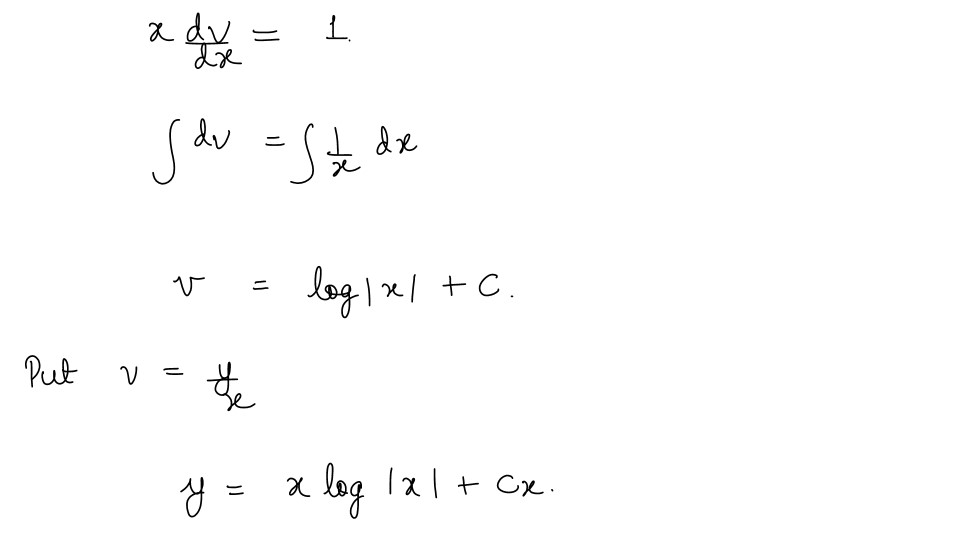 x dv/dx = 1.
∫ dv = ∫ 1/x dx
v = log|x| + C.
Put v = y/x
y = x log |x| + Cx.